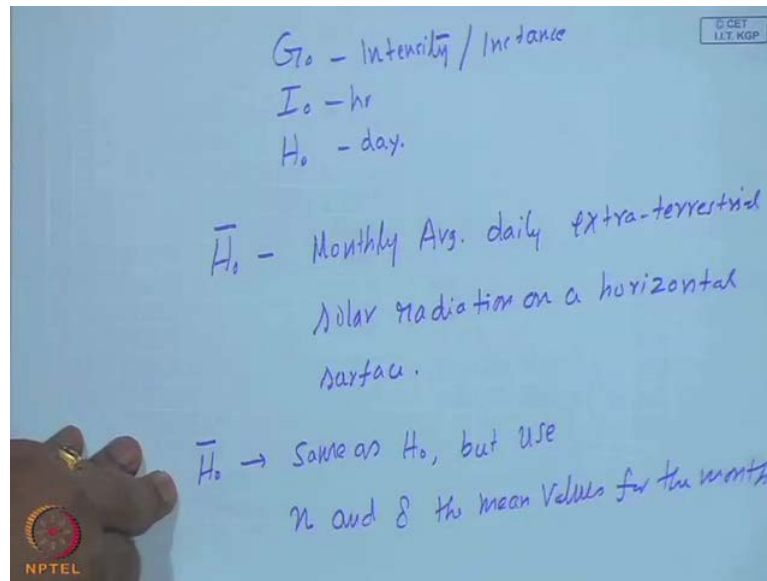 © CET
I.I.T. KGP
G₀ - Intensity / Instance
I₀ - hr
H₀ - day.
H̄₀ - Monthly Avg. daily extra-terrestrial
solar radiation on a horizontal
surface.
H̄₀ → Same as H₀, but use
n and δ the mean values for the month
NPTEL